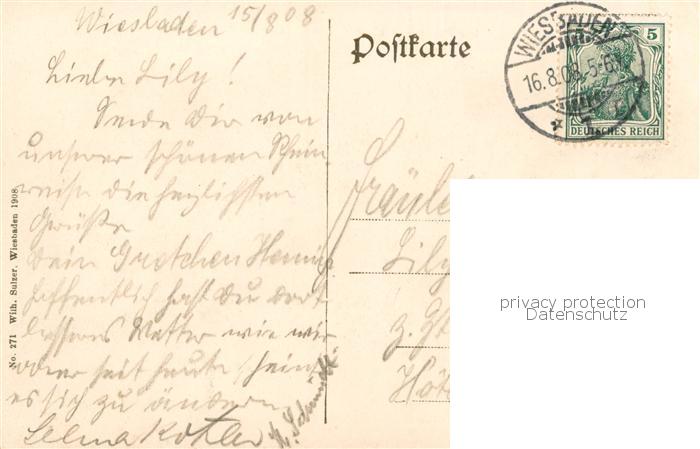 Wiesbaden 15/8 08
Liebe Lily!
Sende Dir von
unserer schönen Rhein
reise die herzlichsten
Grüße
Dein Gretchen
Hoffentlich hast Du dort
besseres Wetter wie wir
oder seit heute scheint
es sich zu ändern
Selma K. Schmidt
No. 271 Wilh. Sulzer, Wiesbaden 1908.
Postkarte
WIESBADEN
16.8.08. 5-6
5
DEUTSCHES REICH
Fräule
Lily
z. Zt
Höt
privacy protection
Datenschutz